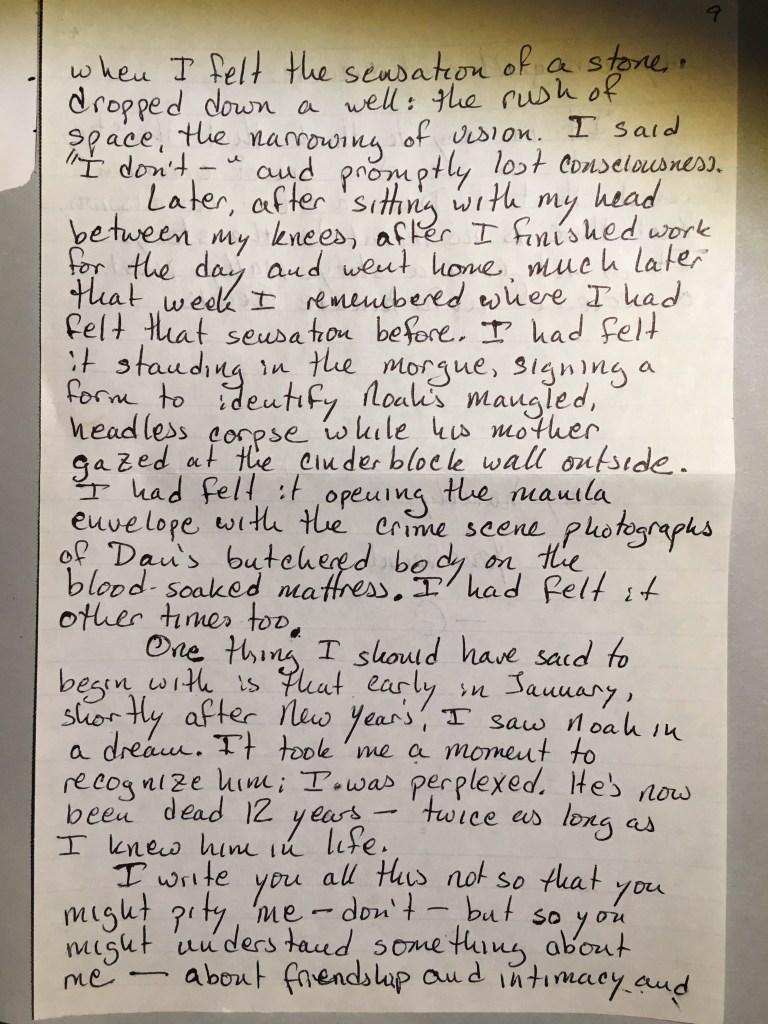 9
when I felt the sensation of a stone.
dropped down a well: the rush of
space, the narrowing of vision. I said
"I don't – " and promptly lost consciousness.
Later, after sitting with my head
between my knees, after I finished work
for the day and went home, much later
that week I remembered where I had
felt that sensation before. I had felt
it standing in the morgue, signing a
form to identify Noah's mangled,
headless corpse while his mother
gazed at the cinderblock wall outside.
I had felt it opening the manila
envelope with the crime scene photographs
of Dan's butchered body on the
blood-soaked mattress. I had felt it
other times too.
One thing I should have said to
begin with is that early in January,
shortly after New Year's, I saw Noah in
a dream. It took me a moment to
recognize him; I was perplexed. He's now
been dead 12 years – twice as long as
I knew him in life.
I write you all this not so that you
might pity me – don't – but so you
might understand something about
me — about friendship and intimacy and